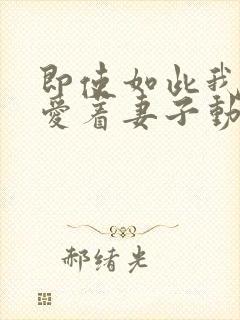 即使如此我
爱着妻子動
郝绪光